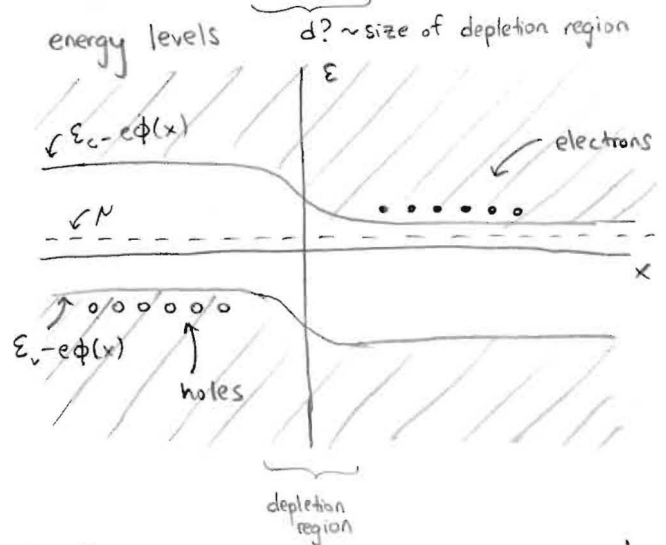 energy levels
d? ~ size of depletion region
ε
ε_c - eφ(x)
electrons
μ
x
ε_v - eφ(x)
holes
depletion
region